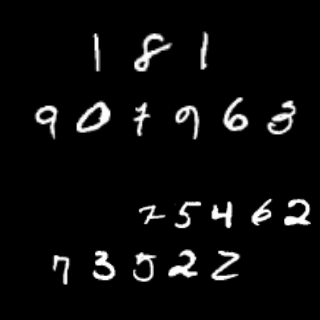 181
907963
75462
73522